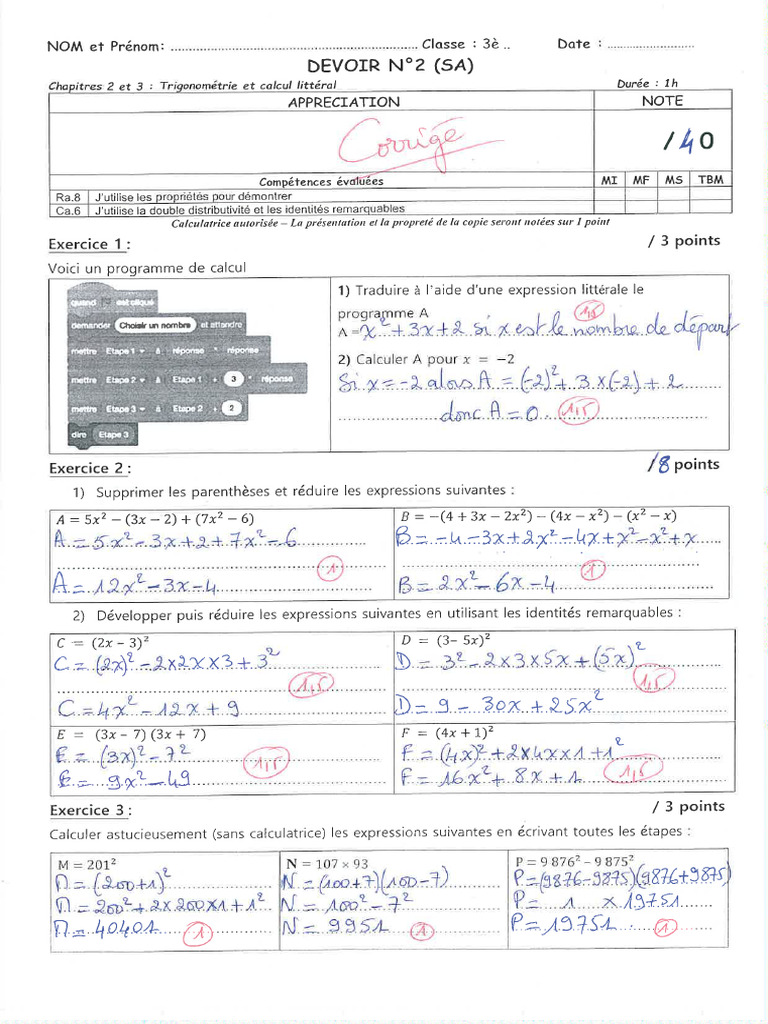 NOM et Prénom: ........................................ Classe : 3è .. Date : ....................
DEVOIR N°2 (SA)
Chapitres 2 et 3 : Trigonométrie et calcul littéral Durée : 1h
APPRECIATION NOTE
Corrigé / 40
Compétences évaluées MI MF MS TBM
Ra.8 J'utilise les propriétés pour démontrer
Ca.6 J'utilise la double distributivité et les identités remarquables
Calculatrice autorisée – La présentation et la propreté de la copie seront notées sur 1 point
Exercice 1 : / 3 points
Voici un programme de calcul
quand est cliqué
demander Choisir un nombre et attendre
mettre Etape 1 à réponse * réponse
mettre Etape 2 à Etape 1 + 3 * réponse
mettre Etape 3 à Etape 2 + 2
dire Etape 3
1) Traduire à l'aide d'une expression littérale le
programme A 1,5
A = x² + 3x + 2 si x est le nombre de départ
2) Calculer A pour x = −2
Si x = −2 alors A = (−2)² + 3 × (−2) + 2
donc A = 0 1,5
Exercice 2 : /8 points
1) Supprimer les parenthèses et réduire les expressions suivantes :
A = 5x² − (3x − 2) + (7x² − 6)
A = 5x² − 3x + 2 + 7x² − 6
1
A = 12x² − 3x − 4
B = −(4 + 3x − 2x²) − (4x − x²) − (x² − x)
B = −4 − 3x + 2x² − 4x + x² − x² + x
1
B = 2x² − 6x − 4
2) Développer puis réduire les expressions suivantes en utilisant les identités remarquables :
C = (2x – 3)²
C = (2x)² − 2×2x×3 + 3²
1,5
C = 4x² − 12x + 9
D = (3– 5x)²
D = 3² − 2×3×5x + (5x)²
1,5
D = 9 − 30x + 25x²
E = (3x – 7) (3x + 7)
E = (3x)² − 7²
1,5
E = 9x² − 49
F = (4x + 1)²
F = (4x)² + 2×4x×1 + 1²
F = 16x² + 8x + 1 1,5
Exercice 3 : / 3 points
Calculer astucieusement (sans calculatrice) les expressions suivantes en écrivant toutes les étapes :
M = 201²
M = (200+1)²
M = 200² + 2×200×1 + 1²
M = 40401 1
N = 107 × 93
N = (100+7)(100−7)
N = 100² − 7²
N = 9951 1
P = 9 876² − 9 875²
P = (9876−9875)(9876+9875)
P = 1 × 19751
P = 19751 1